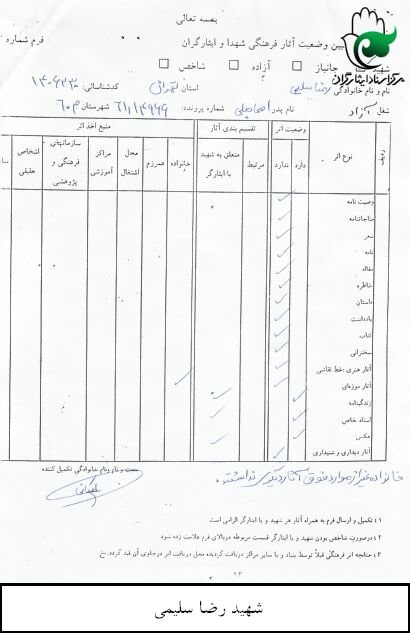 بسمه تعالی
مرکز اسناد ایثارگران
یین وضعیت آثار فرهنگی شهدا و ایثارگران
فرم شماره
شهید جانباز آزاده شاخص
نام و نام خانوادگی رضا سلیمی کدشناسائی:
شغل آزاد نام پدر شماره پرونده: شهرستان
ردیف
نوع اثر
وضعیت اثر
تقسیم بندی آثار
منبع اخذ اثر
دارد
ندارد
مرتبط
متعلق به شهید با ایثارگر
خانواده
همرزم
محل اشتغال
مراکز آموزشی
سازمانهای فرهنگی و پژوهشی
اشخاص حقیقی
وصیت نامه
مناجاتنامه
شعر
نامه
مقاله
خاطره
داستان
یادداشت
کتاب
سخنرانی
آثار هنری،خط نقاشی
آثار موزه‌ای
زندگینامه
اسناد خاص
عکس
آثار دیداری و شنیداری
خانواده غیر از موارد فوق آثار دیگری نداشتند
سمت و نام ونام خانوادگی تکمیل کننده
۱) تکمیل و ارسال فرم به همراه آثار هر شهید و یا ایثارگر الزامی است
۲) درصورت شاخص بودن شهید و یا ایثارگر قسمت مربوطه دربالای فرم علامت زده شود
۳) چنانچه اثر فرهنگی قبلاً توسط بنیاد و یا سایر مراکز دریافت گردیده محل دریافت اثر درجلوی آن قید گردد.
شهید رضا سلیمی